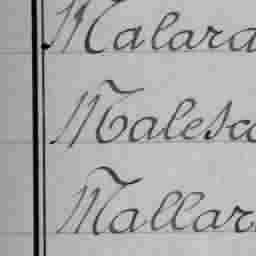 Malara
Malesc
Mallar